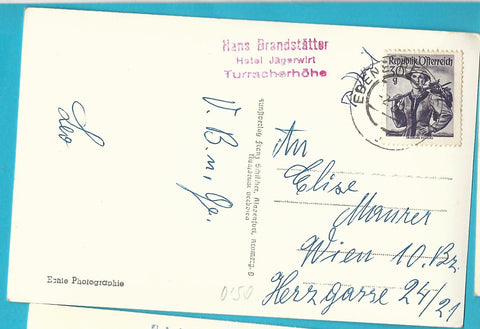 Hans Brandstätter
Hotel Jägerwirt
Turracherhöhe
Republik Österreich
30
g
EBENE
Leo
V. B. n. Ga.
An
Elise
Maurer
Wien 10. Bz.
Herzgasse 24/21
Echte Photographie
0'50